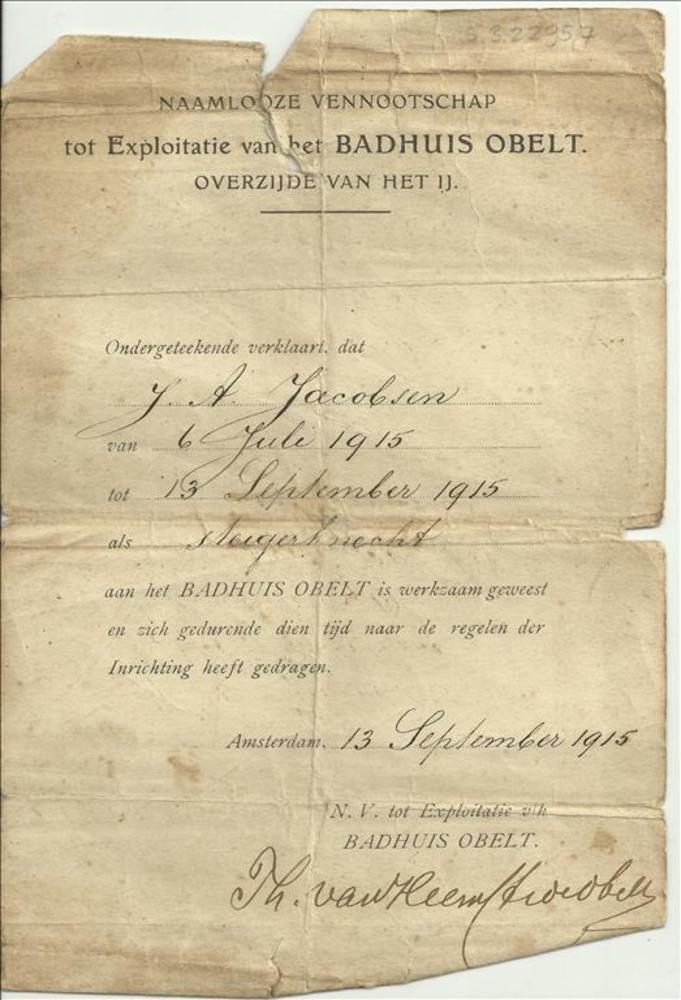 5322957
NAAMLOOZE VENNOOTSCHAP
tot Exploitatie van het BADHUIS OBELT.
OVERZIJDE VAN HET IJ.
Ondergeteekende verklaart, dat
J. A. Jacobsen
van 6 Juli 1915
tot 13 September 1915
als steigerknecht
aan het BADHUIS OBELT is werkzaam geweest
en zich gedurende dien tijd naar de regelen der
Inrichting heeft gedragen.
Amsterdam, 13 September 1915
N. V. tot Exploitatie v/h
BADHUIS OBELT.
Th. van Heemstra